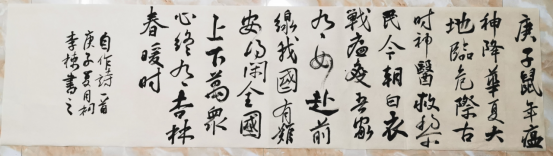 庚子鼠年瘟
神降華夏大
地臨危際古
时神醫救黎
民今朝白衣
戰瘟毒吾家
有女赴前
線我國有難
安得闲全國
上下萬衆
心終有杏林
春暖时
自作詩一首
庚子夏月
李棟書之